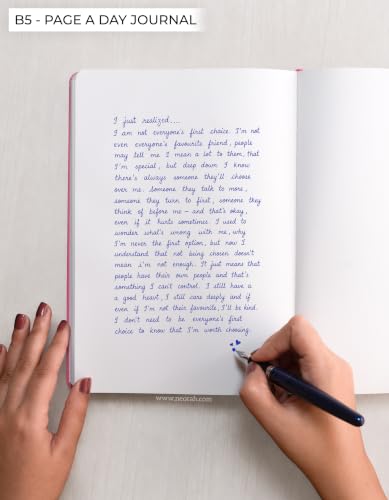 B5 - PAGE A DAY JOURNAL
I just realized....
I am not everyone's first choice. I'm not
even everyone's favourite friend, people
may tell me I mean a lot to them, that
I'm special, but deep down I know
there's always someone they'll choose
over me. Someone they talk to more,
someone they turn to first, someone they
think of before me - and that's okay,
even if it hurts sometimes. I used to
wonder what's wrong with me, why
I'm never the first option, but now I
understand that not being chosen doesn't
mean i'm not enough. It just means that
people have their own people and that's
something I can't control. I still have a
a good heart, I still care deeply and if
even if I'm not their favourite, I'll be kind.
I don't need to be everyone's first
choice to know that I'm worth choosing.
www.neorah.com